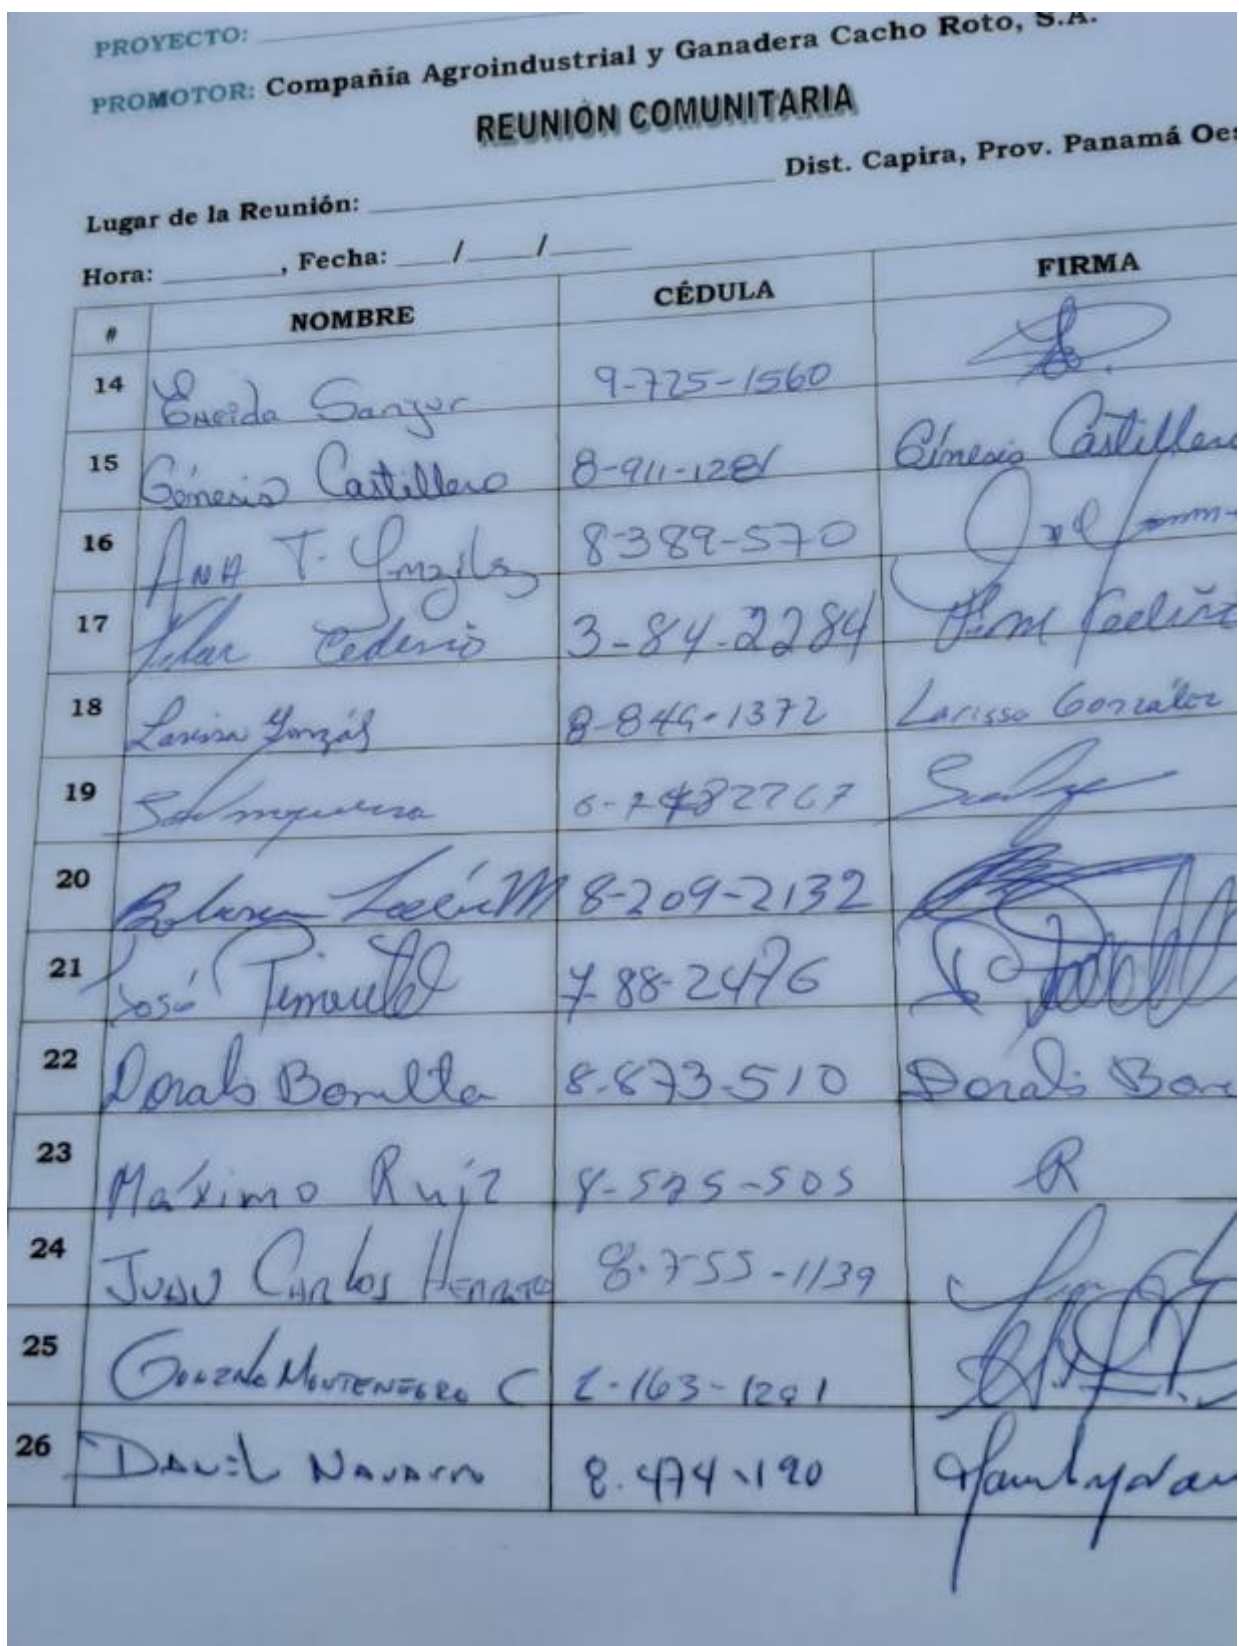 PROYECTO:
PROMOTOR: Compañía Agroindustrial y Ganadera Cacho Roto, S.A.
REUNIÓN COMUNITARIA
Lugar de la Reunión: Dist. Capira, Prov. Panamá Oes
Hora: , Fecha: / /
# NOMBRE CÉDULA FIRMA
14 Eneida Sangur 9-725-1560
15 Génesis Castillero 8-911-1281 Génesis Castillero
16 Ana T. 8-389-570
17 Pilar Cedeño 3-84-2284
18 Larissa 8-849-1372 Larissa González
19
20 8-209-2132
21 José Pimentel 7-88-2476
22 Doralis Bonilla 8-873-510 Doralis Bon
23 Máximo Ruíz 8-525-505 R
24 Juan Carlos Herrera 8-755-1139
25 Gonzalo Montenegro C 2-163-1201
26 Daniel Navarro 8-474-190